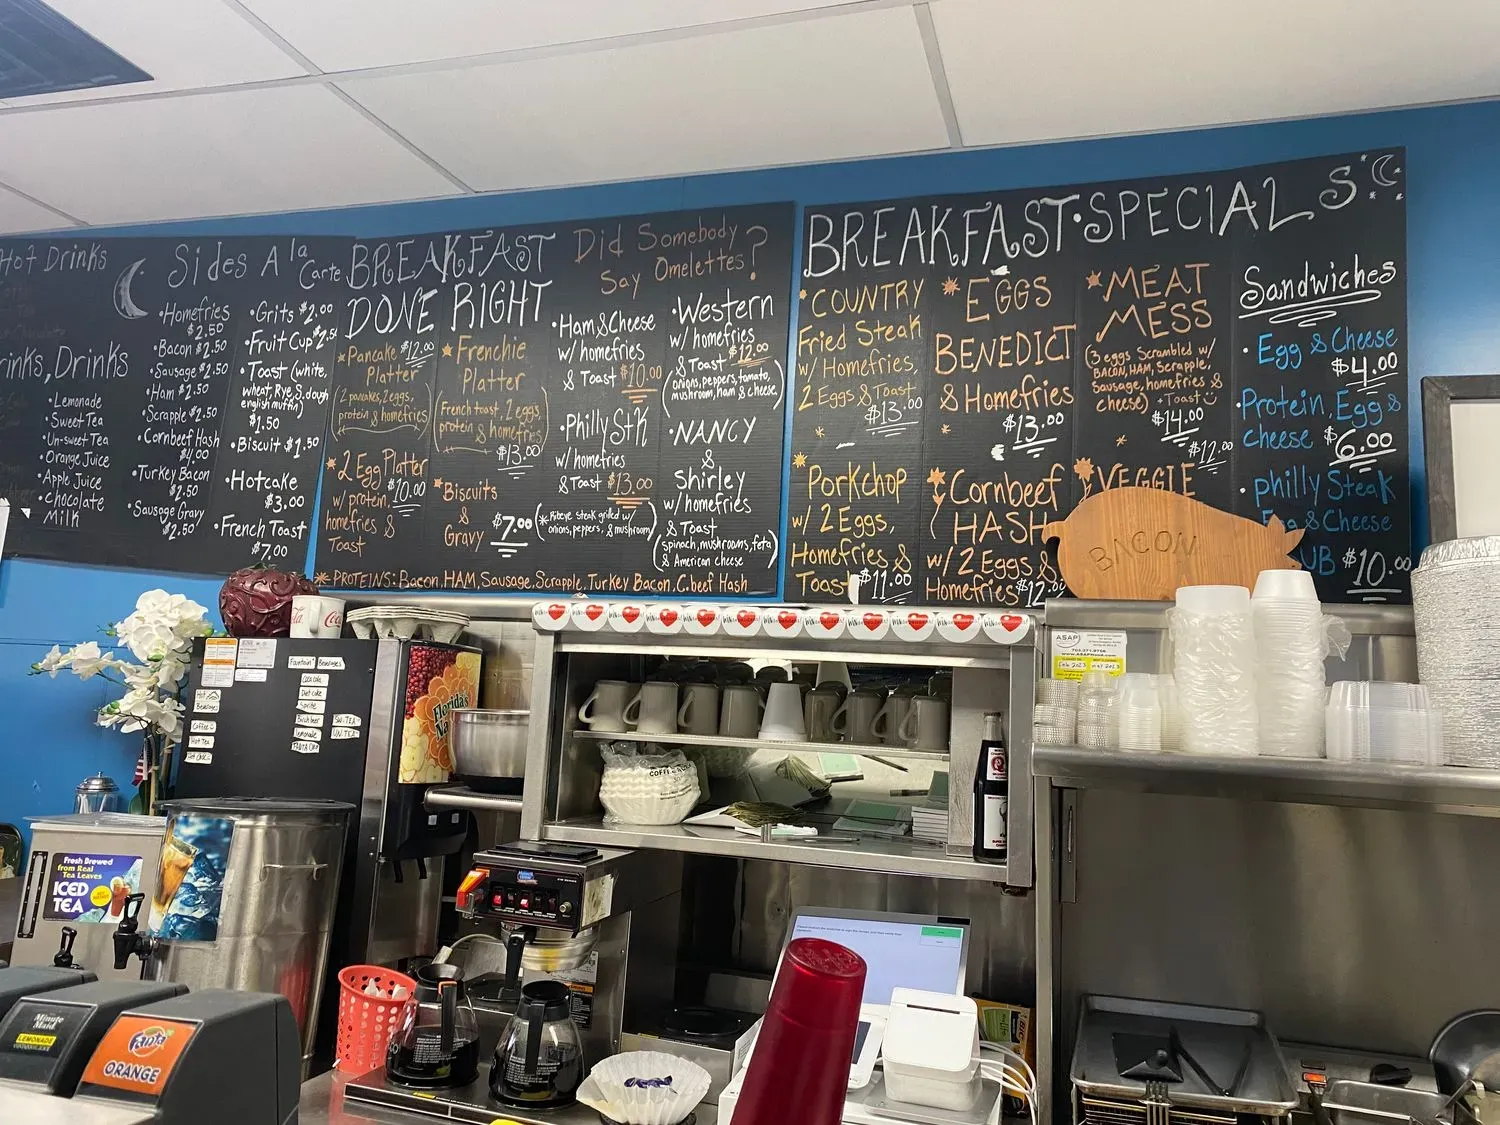 Hot Drinks
rinks, Drinks
• Lemonade
• Sweet Tea
• Un-sweet Tea
• Orange Juice
• Apple Juice
• Chocolate
Milk
Sides A la
Carte
• Homefries
$2.50
• Bacon $2.50
• Sausage $2.50
• Ham $2.50
• Scrapple $2.50
• Cornbeef Hash
$4.00
• Turkey Bacon
2.50
• Sausage Gravy
$2.50
• Grits $2.00
• Fruit Cup $2.5
• Toast (white,
wheat, Rye, S.dough
english muffin)
$1.50
• Biscuit $1.50
• Hotcake
$3.00
• French Toast
$7.00
BREAKFAST
DONE RIGHT
Pancake $12.00
Platter
(2 pancakes, 2 eggs,
protein & homefries)
2 Egg Platter
w/ protein, $10.00
homefries &
Toast
Frenchie
Platter
(French toast, 2 eggs,
protein & homefries)
$13.00
Biscuits
&
Gravy $7.00
Did Somebody
Say Omelettes?
• Ham & Cheese
w/ homefries
& Toast $10.00
• Philly Stk
w/ homefries
& Toast $13.00
(Ribeye steak grilled w/
onions, peppers, & mushroom)
• Western
w/ homefries
& Toast $12.00
(onions, peppers, tomato,
mushroom, ham & cheese)
• NANCY
&
Shirley
w/ homefries
& Toast
(spinach, mushrooms, feta
& American cheese)
PROTEINS: Bacon, HAM, Sausage, Scrapple, Turkey Bacon, C.beef Hash
BREAKFAST • SPECIALS
COUNTRY
Fried Steak
w/ Homefries,
2 Eggs & Toast
$13.00
Porkchop
w/ 2 Eggs,
Homefries &
Toast $11.00
EGGS
BENEDICT
& Homefries
$13.00
Cornbeef
HASH
w/ 2 Eggs &
Homefries $12.00
MEAT
MESS
(3 eggs Scrambled w/
BACON, HAM, Scrapple,
Sausage, homefries &
cheese) + Toast
$14.00
$12.00
VEGGIE
Sandwiches
• Egg & Cheese
$4.00
• Protein, Egg &
cheese $6.00
• philly Steak
Egg & Cheese
UB $10.00
BACON
Fountain Beverages
Coca cola
Diet coke
Sprite
Birch beer
Lemonade
SW. TEA
UN. TEA
Hot
Beverages
Coffee
Hot Tea
Florida's
Na
COFFEE
ASAP
www.ASAPHood.com
Feb 2023
Fresh Brewed
from Real
Tea Leaves
ICED
TEA
Minute
Maid
LEMONADE
Fanta
ORANGE